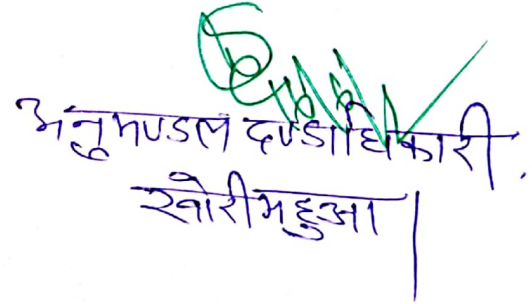 अनुमण्डल दण्डाधिकारी.
खोरीमहुआ।